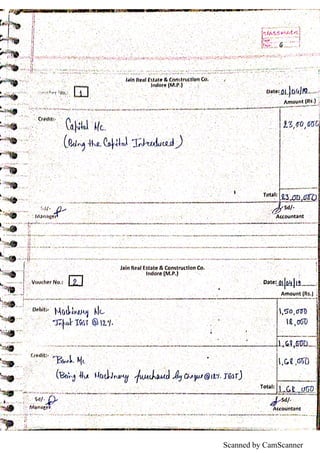 classmate
Date
Page 6
Jain Real Estate & Construction Co.
Indore (M.P.)
Voucher No.: 1
Date: 01/04/19
Amount (Rs.)
Credit:-
Capital A/c
23,00,000
(Being the Capital Introduced)
Total: 23,00,000
Sd/-
Manager
Sd/-
Accountant
Jain Real Estate & Construction Co.
Indore (M.P.)
Voucher No.: 2
Date: 01/04/19
Amount (Rs.)
Debit:- Machinery A/c 1,50,000
Input IGST @ 12%. 18,000
1,68,000
Credit:-
Bank A/c 1,68,000
(Being the Machinery purchased by cheque @ 12%. IGST)
Total: 1,68,000
Sd/-
Manager
Sd/-
Accountant
Scanned by CamScanner